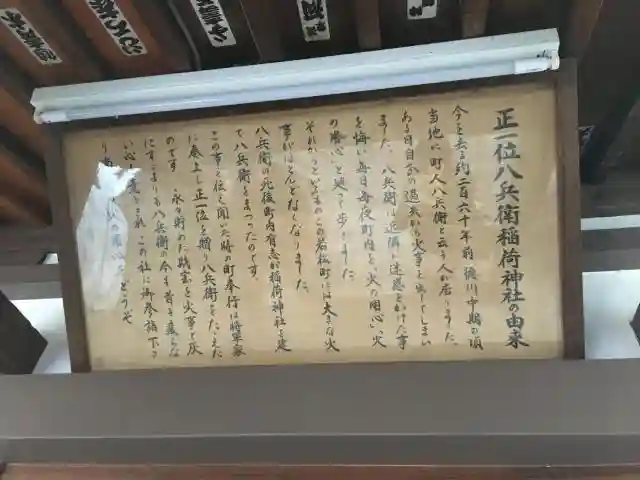 正一位八兵衛稲荷神社の由来
今を去る約二百六十年前徳川中期の頃
当地に町人八兵衛と云う人が居りました。
ある日自分の過失から火事を出してしまい
ました。八兵衛は近隣に迷惑をかけた事
を悔い毎日毎夜町内を「火の用心、火
の用心」と廻って歩きました
それからというものこの若松町には大きな火
事がほとんどなくなりました。
八兵衛の死後町内有志が稲荷神社を建
て八兵衛をまつったのです。
この事を伝え聞いた時の町奉行は将軍家
に奏上し正一位を贈り八兵衛をたたえた
のです 永々時のた
を火事と灰
にすることあり
八兵衛の今も昔も変らな
い心
この社に御参詣下さ
り
の用心
どうぞ